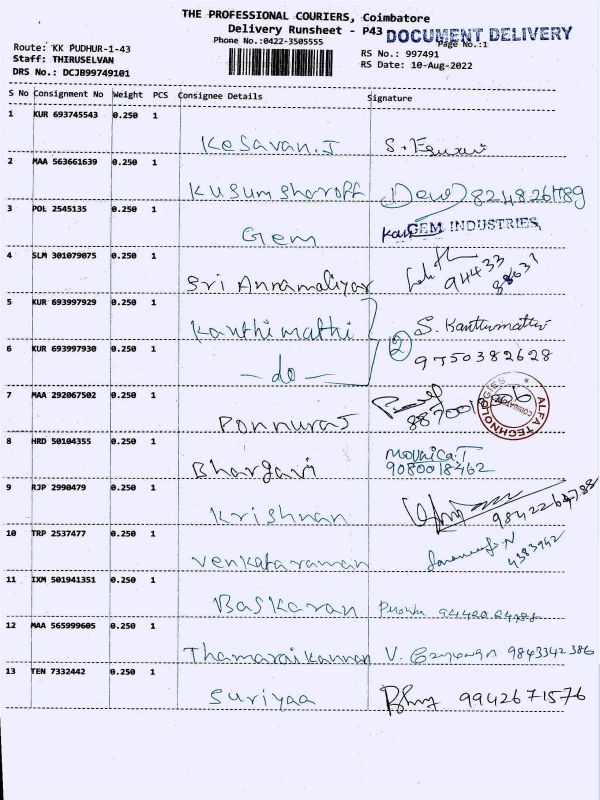 THE PROFESSIONAL COURIERS, Coimbatore
Delivery Runsheet - P43 DOCUMENT DELIVERY
Phone No.:0422-3505555 Page No.:1
Route: KK PUDHUR-1-43 RS No.: 997491
Staff: THIRUSELVAN RS Date: 10-Aug-2022
DRS No.: DCJB99749101
S No Consignment No Weight PCS Consignee Details Signature
1 KUR 693745543 0.250 1
Kesavan.J S.
2 MAA 563661639 0.250 1
Kusum sharoff
3 POL 2545135 0.250 1
Gem GEM INDUSTRIES,
4 SLM 301079075 0.250 1
Sri Annamaliyar 94433
5 KUR 693997929 0.250 1
Kanthimathi S. Kanthimathi
2
6 KUR 693997930 0.250 1
- do - 9750382628
7 MAA 292067502 0.250 1
Ponnuraj ALFA TECHNOLOGIES
8 HRD 50104355 0.250 1
Bhargavi Movnica.T
9080018462
9 RJP 2990479 0.250 1
Krishnan
10 TRP 2537477 0.250 1
Venkataraman
11 IXM 501941351 0.250 1
Baskaran
12 MAA 565999605 0.250 1
Thamaraikannan V. 9843342386
13 TEN 7332442 0.250 1
Suriyaa 9942671576